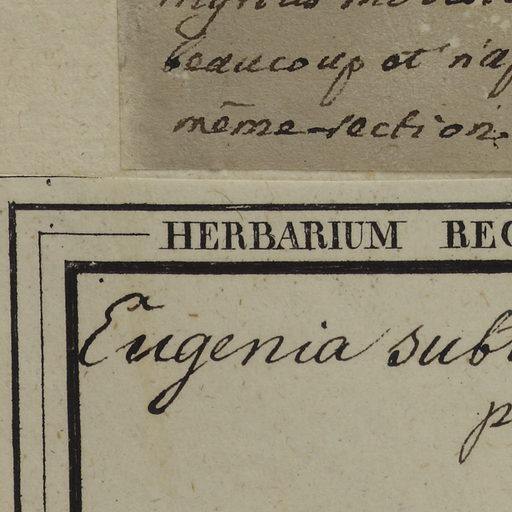 beaucoup et n'ap
même section.
HERBARIUM REG
Eugenia subt
p